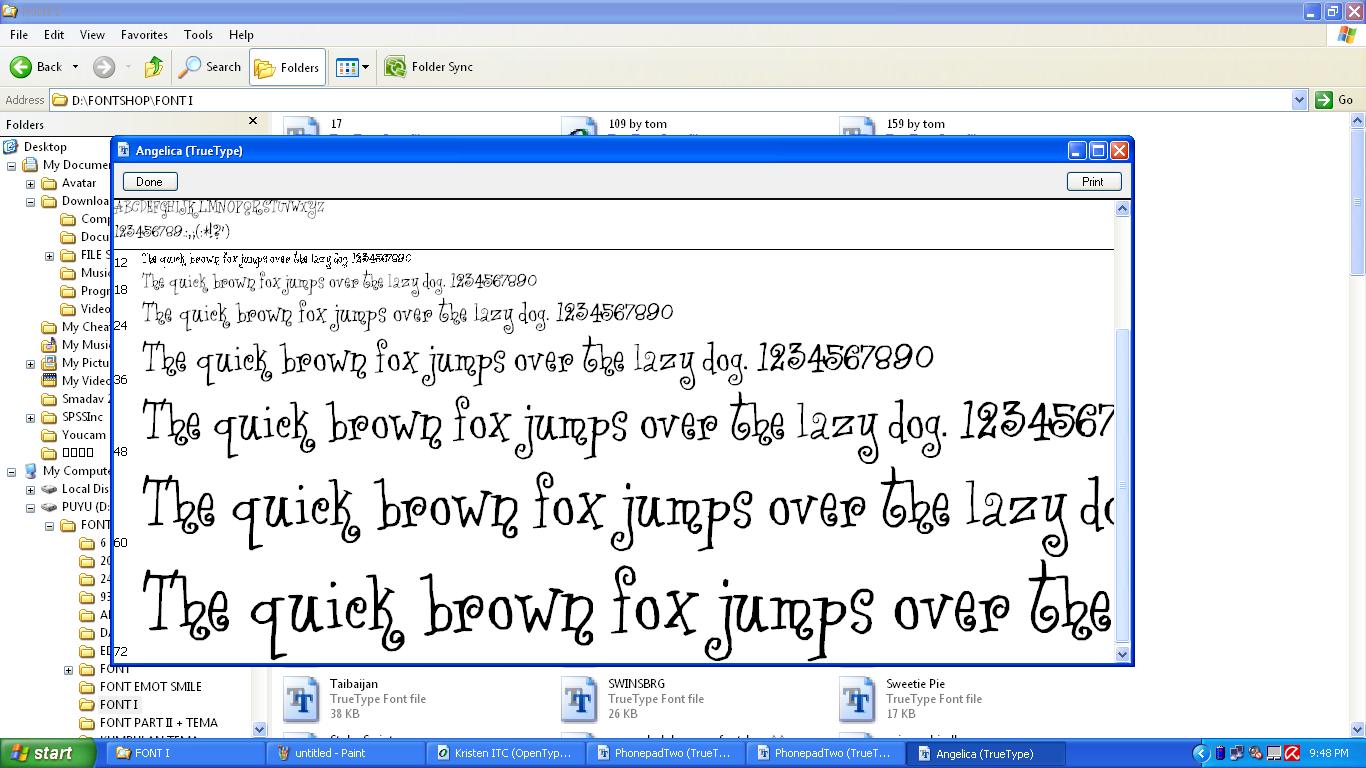 FONT I
File Edit View Favorites Tools Help
Back Search Folders Folder Sync
Address D:\FONTSHOP\FONT I Go
Folders
Desktop
My Docume
Avatar
Downloa
Comp
Docu
FILE S
Music
Progr
Video
My Cheat
My Musi
My Pictu
My Video
Smadav 2
SPSSInc
Youcam
My Compute
Local Dis
PUYU (D:
FONT
6
20
24
93
AI
DA
ED
FONT
FONT EMOT SMILE
FONT I
FONT PART II + TEMA
17
109 by tom
159 by tom
Angelica (TrueType)
Done Print
ABCDEFGHIJKLMNOPQRSTUVWXYZ
12 The quick brown fox jumps over the lazy dog. 1234567890
18 The quick brown fox jumps over the lazy dog. 1234567890
24 The quick brown fox jumps over the lazy dog. 1234567890
36 The quick brown fox jumps over the lazy dog. 1234567890
48 The quick brown fox jumps over the lazy dog. 1234567
60 The quick brown fox jumps over the lazy do
72 The quick brown fox jumps over the
Taibaijan
TrueType Font file
38 KB
SWINSBRG
TrueType Font file
26 KB
Sweetie Pie
TrueType Font file
17 KB
start FONT I untitled - Paint Kristen ITC (OpenTyp... PhonepadTwo (TrueT... PhonepadTwo (TrueT... Angelica (TrueType) 9:48 PM